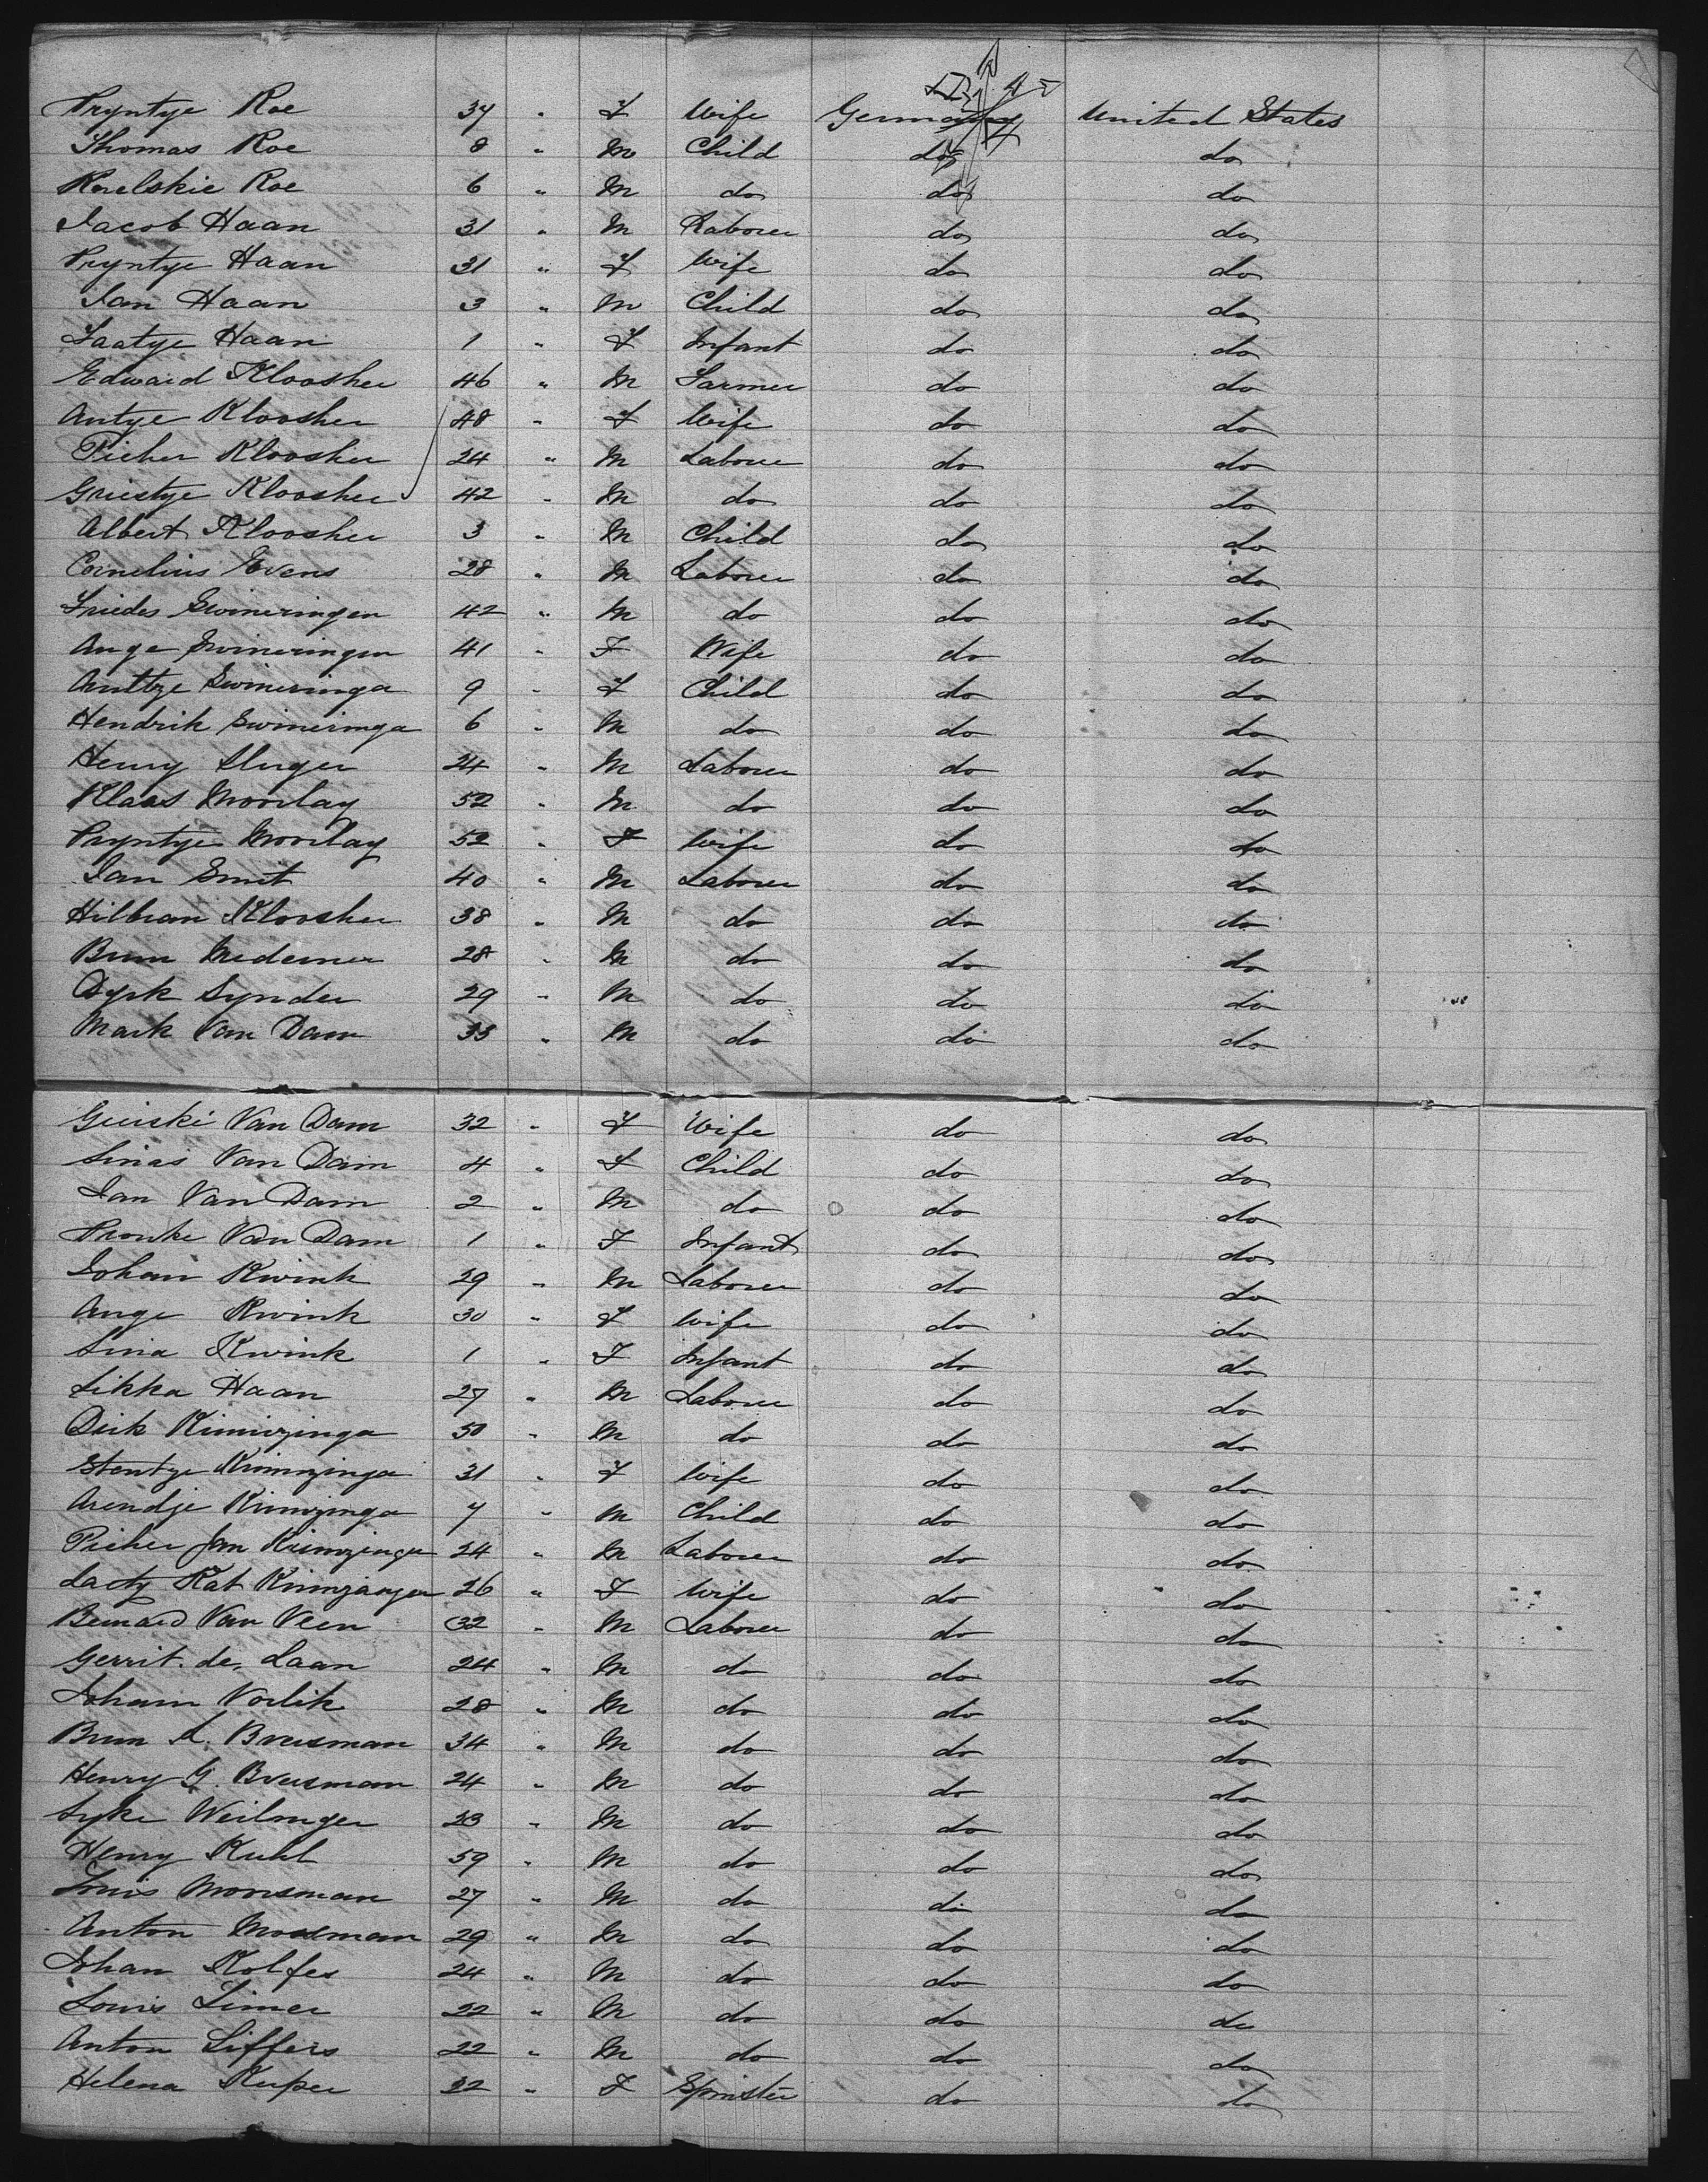 Pryntye Roe 37 " F Wife Germany United States
Thomas Roe 8 " M Child do do
Roelskie Roe 6 " M do do do
Jacob Haan 31 " M Laborer do do
Pryntye Haan 31 " F Wife do do
Jan Haan 3 " M Child do do
Taatye Haan 1 " F Infant do do
Edward Kloosher 46 " M Farmer do do
Antye Kloosher 48 " F Wife do do
Picher Kloosher 24 " M Laborer do do
Griestye Kloosher 42 " M do do do
Albert Kloosher 3 " M Child do do
Cornelius Evens 28 " M Laborer do do
Friedes Swineringen 42 " M do do do
Ange Swineringen 41 " F Wife do do
Anttye Swineringa 9 " F Child do do
Hendrik Swineringa 6 " M do do do
Henry Sluger 24 " M Laborer do do
Klaas Moorlag 52 " M do do do
Pryntye Moorlag 52 " F Wife do do
Jan Smit 40 " M Laborer do do
Hilbran Kloosher 38 " M do do do
Brun Medemer 28 " M do do do
Dyrk Synder 29 " M do do do
Mark Van Dam 33 " M do do do
Gieiske Van Dam 32 " F Wife do do
Sinas Van Dam 4 " F Child do do
Jan Van Dam 2 " M do do do
Pronke Van Dam 1 " F Infant do do
Johan Kwink 29 " M Laborer do do
Ange Kwink 30 " F Wife do do
Sina Kwink 1 " F Infant do do
Likka Haan 27 " M Laborer do do
Dirk Kimizinga 50 " M do do do
Stentye Kimizinga 31 " F Wife do do
Arendje Kimizinga 7 " M Child do do
Picher Jan Kimizinga 24 " M Laborer do do
Lacty Kat Kimizinga 26 " F Wife do do
Bernard Van Veen 32 " M Laborer do do
Gerrit de Laan 24 " M do do do
Johann Vorlik 28 " M do do do
Brun K. Breesman 34 " M do do do
Henry G. Breesman 24 " M do do do
Syke Weilinger 23 " M do do do
Henry Kuhl 59 " M do do do
Louis Moorsman 27 " M do do do
Anton Mosemann 29 " M do do do
Johan Kolfes 24 " M do do do
Louis Limer 22 " M do do do
Anton Siffers 22 " M do do do
Helena Kuper 22 " F Spinster do do